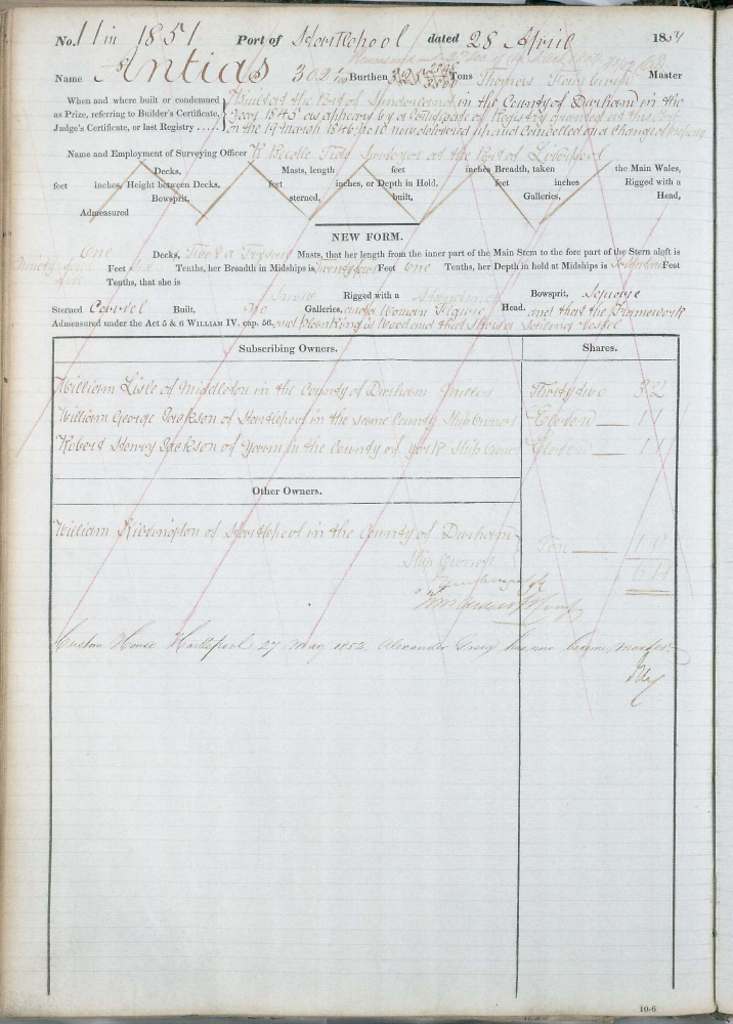 No. 11 in 1851 Port of Hartlepool dated 28 April 1851
Name Antias Burthen 325 Tons Thomas Master
When and where built or condemned
as Prize, referring to Builder's Certificate,
Judge's Certificate, or last Registry ....
Built at the Port of in the County of Durham in the
Year 1845 as appears by a Certificate of Registry granted at this Port
on the 19 March 1846 No 10 now delivered up and Cancelled on a change of
Name and Employment of Surveying Officer Tide Surveyor at the Port of Liverpool
Decks, Masts, length feet inches Breadth, taken the Main Wales,
feet inches, Height between Decks, feet inches, or Depth in Hold, feet inches Rigged with a
Bowsprit, sterned, built, Galleries, Head,
Admeasured
NEW FORM.
One Decks, Two & a Masts, that her length from the inner part of the Main Stem to the fore part of the Stern aloft is
Feet Tenths, her Breadth in Midships is Feet One Tenths, her Depth in hold at Midships is Feet
Tenths, that she is
Rigged with a Standing Bowsprit, Square
Sterned Carvel Built, No Galleries, and a Woman Figure Head. and that the Framework
Admeasured under the Act 5 & 6 WILLIAM IV. cap. 56, and planking is Wood and that She is a
Subscribing Owners. Shares.
William Lisle of Middleton in the County of Durham Thirty two 32
William George Jackson of Hartlepool in the same County Ship Owner Eleven 11
Robert Henry Jackson of Yarm in the County of York Ship Owner Eleven 11
Other Owners.
William of Hartlepool in the County of Durham
Ship Owner Ten 10
64
Custom House Hartlepool 27 May 1852. Alexander Greig has now become master
10-6